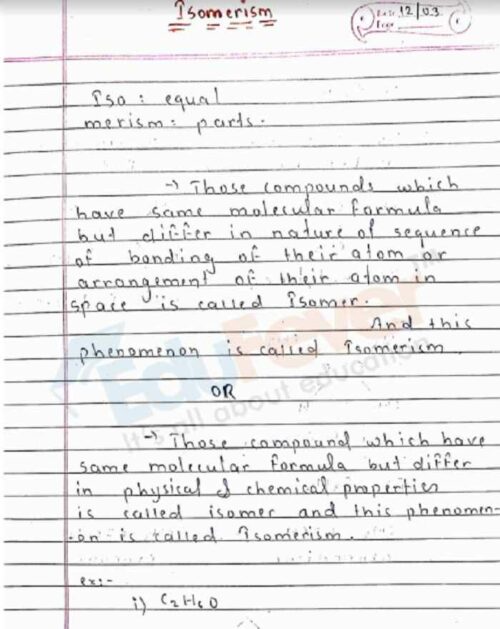 Isomerism
Date 12/03
Page
Iso : equal
merism : parts.
→ Those compounds which
have same molecular formula
but differ in nature of sequence
of bonding of their atom or
arrangement of their atom in
space is called Isomer.
And this
phenomenon is called Isomerism.
OR
→ Those compound which have
same molecular formula but differ
in physical & chemical properties
is called isomer and this phenomen-
-on is called Isomerism.
ex:-
i) C2H6O
EduFever™
It's all about education